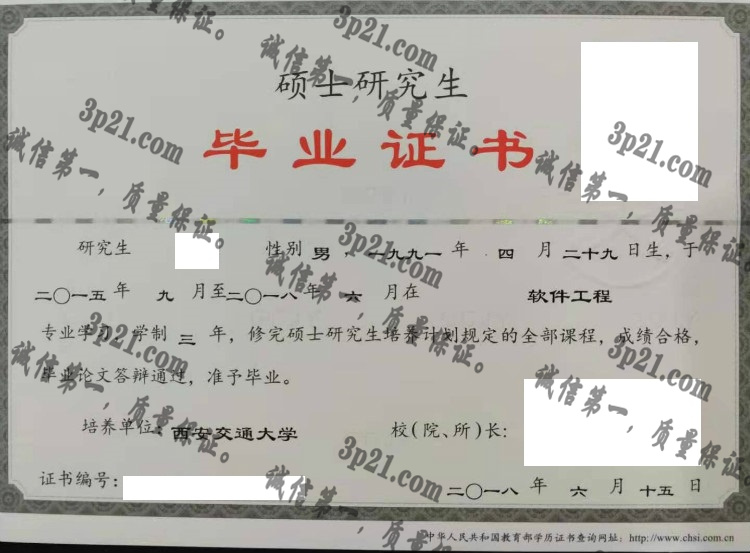 硕士研究生
毕业证书
研究生 性别 男，一九九一年 四 月二十九日生，于
二〇一五年 九 月至二〇一八年 六 月在 软件工程
专业学习，学制 三 年，修完硕士研究生培养计划规定的全部课程，成绩合格，
毕业论文答辩通过，准予毕业。
培养单位：西安交通大学 校(院、所)长：
证书编号：
二〇一八 年 六 月 十五 日
中华人民共和国教育部学历证书查询网址：http://www.chsi.com.cn
3p21.com
诚信第一，质量保证。
3p21.com
诚信第一，质量保证。
3p21.com
诚信第一，质量保证。
3p21.com
诚信第一，质量保证。
3p21.com
诚信第一，质量保证。
3p21.com
诚信第一，质量保证。
3p21.com
诚信第一，质量保证。